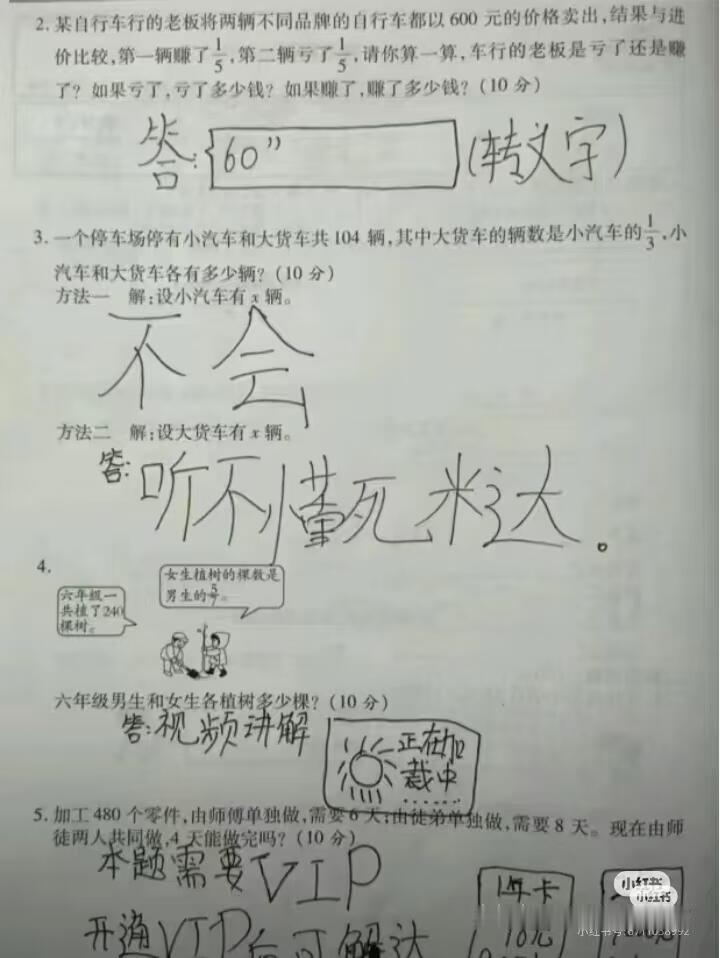 2. 某自行车行的老板将两辆不同品牌的自行车都以 600 元的价格卖出，结果与进
价比较，第一辆赚了1/5，第二辆亏了1/5，请你算一算，车行的老板是亏了还是赚
了？如果亏了，亏了多少钱？如果赚了，赚了多少钱？（10 分）
答：60”（转文字）
3. 一个停车场停有小汽车和大货车共 104 辆，其中大货车的辆数是小汽车的1/3，小
汽车和大货车各有多少辆？（10 分）
方法一 解：设小汽车有 x 辆。
不会
方法二 解：设大货车有 x 辆。
答：听不懂死米达。
4.
女生植树的棵数是
男生的5/7。
六年级一
共植了240
棵树。
六年级男生和女生各植树多少棵？（10 分）
答：视频讲解
正在加
载中
......
5. 加工 480 个零件，由师傅单独做，需要 6 天；由徒弟单独做，需要 8 天。现在由师
徒两人共同做，4 天能做完吗？（10 分）
本题需要VIP
开通VIP后可解达
1年卡
10元
小红书
小红书